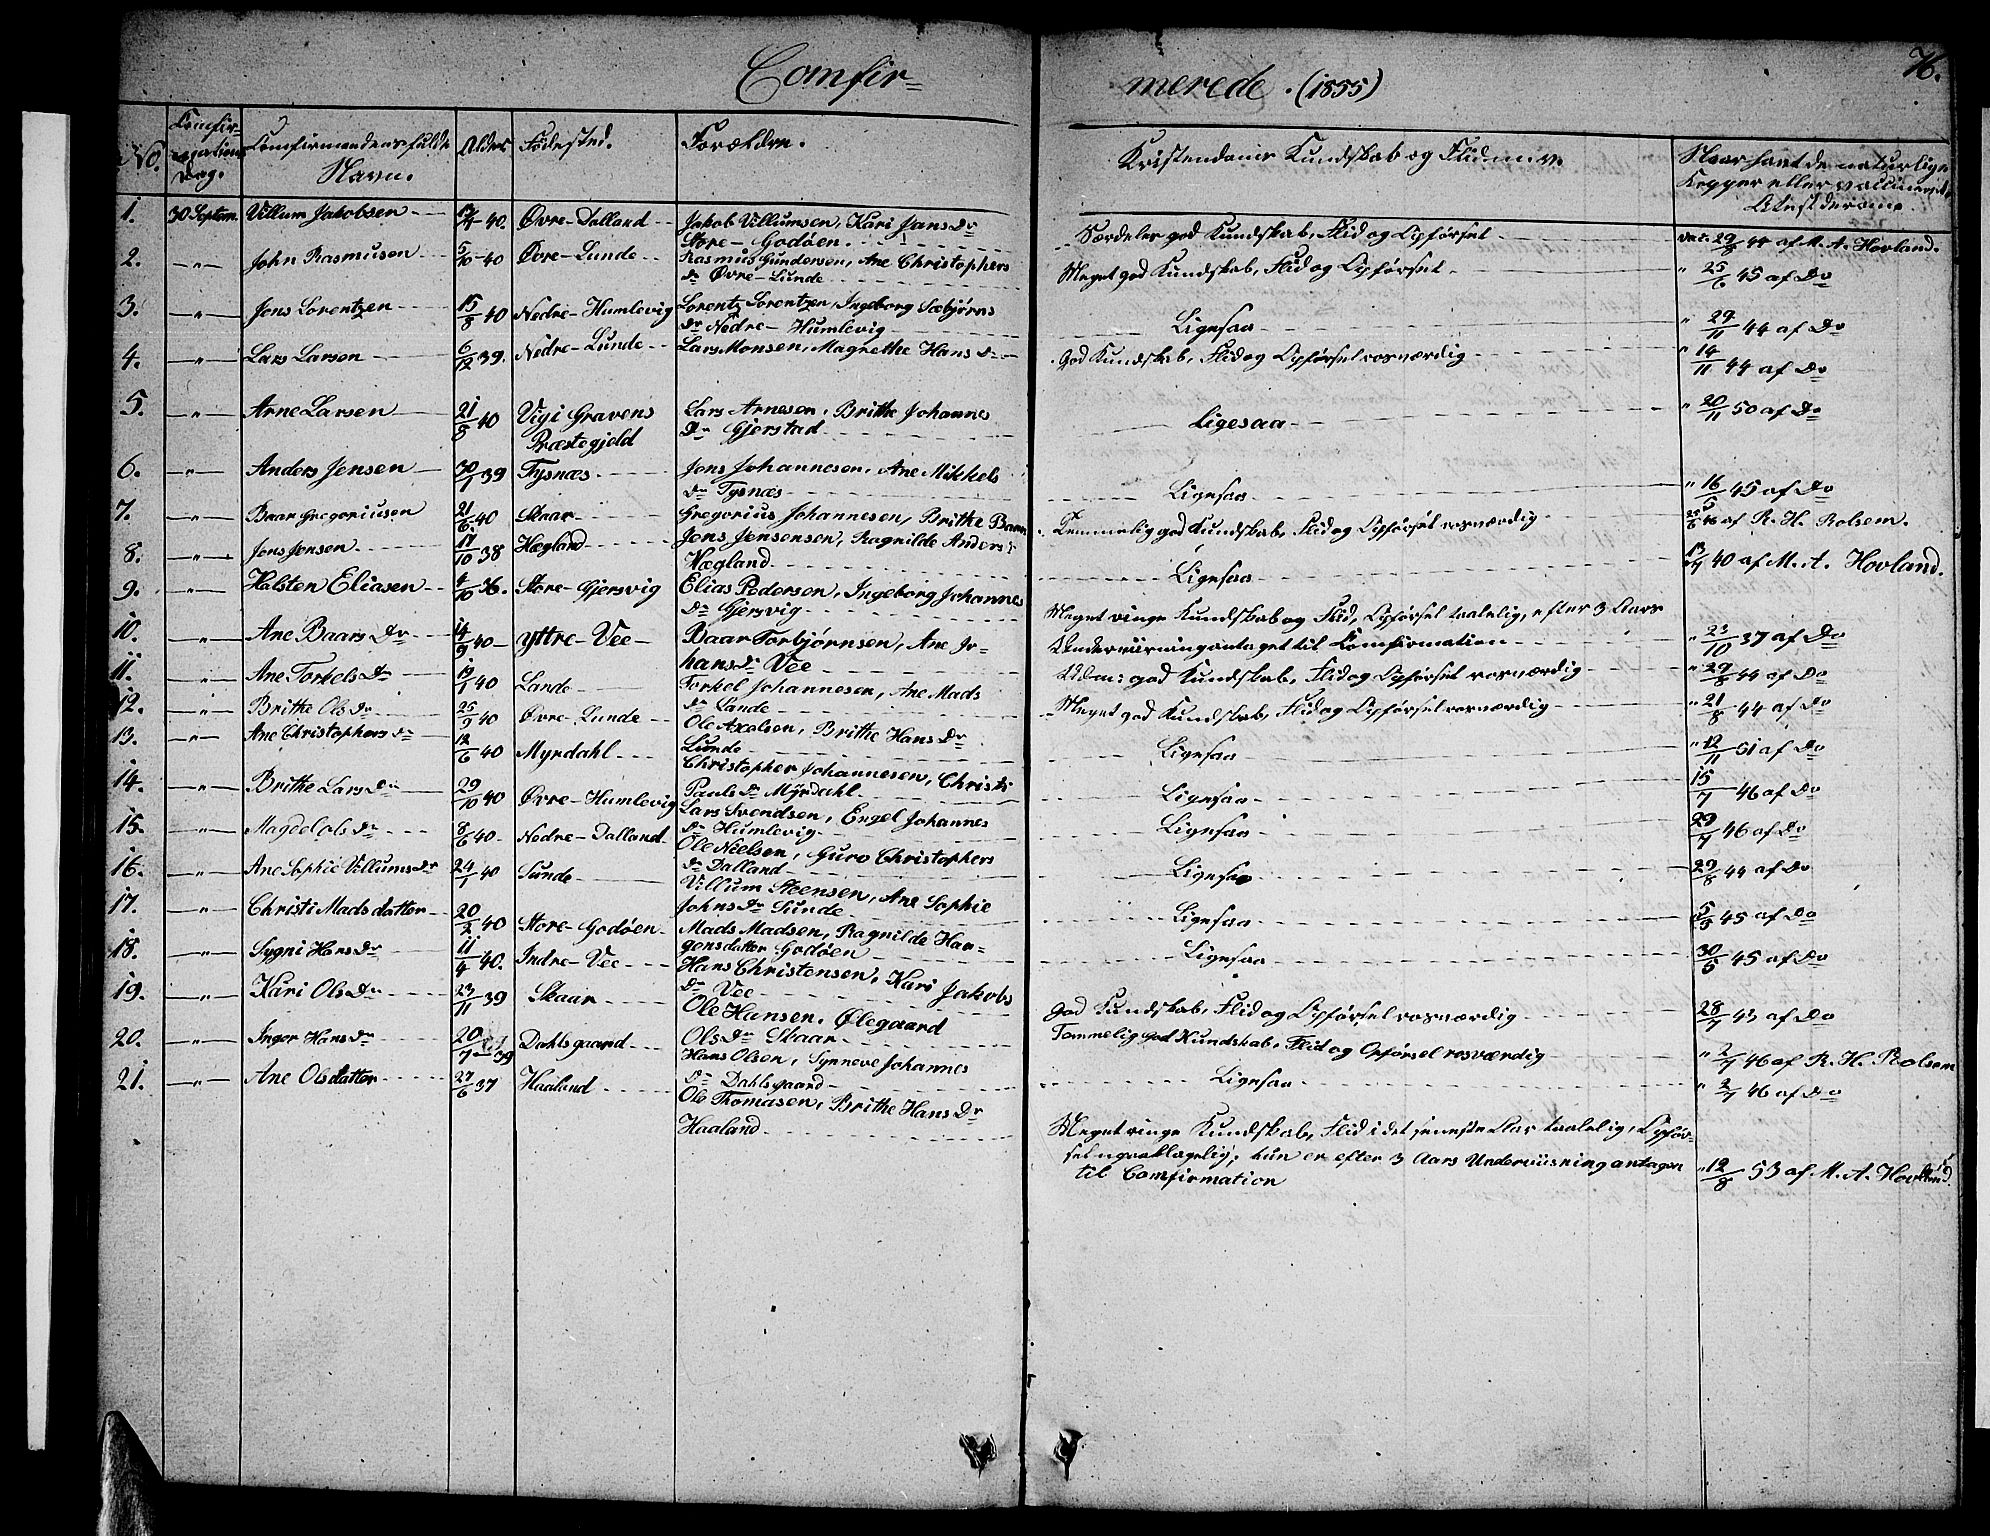 Comfir=
merede. (1855)
76.
No.
Comfir=
mations
Dag.
Comfirmandens fulde
Navn.
Alder
Fødested.
Forældre.
Kristendoms Kundskab og Flid m. v.
Naar havt de naturlige
Kopper eller vaccineret,
Attest derom.
1. 30 Septem. Villum Jakobsen 40. Øvre-Dalland Jakob Villumsen, Kari JansDr
Store-Godøen.
Særdeles god Kundskab, Flid og Opførsel vac. 29/8 44 af M. A. Hovland.
2. " John Rasmusen 5/10 40 Øvre-Lunde Rasmus Gundersen, Ane Christophers
Dr Øvre-Lunde
Meget god Kundskab, Flid og Opførsel " 25/6 45 af Do
3. " Jens Lorentzen 15/8 40 Nedre-Humlevig Lorentz Lorentzen, Ingeborg Sæbjørns
Dr Nedre-Humlevig
Ligesaa " 29/11 44 af Do
4. " Lars Larsen 6/12 39. Nedre-Lunde Lars Monsen, Magrethe Hans Dr
God Kundskab, Flid og Opførsel rosværdig " 14/11 44 af Do
5. " Arne Larsen 21/5 40 Vigi Gravens
Præstegjeld
Lars Arnesen, Brithe Johannes
Dr Gjerstad
Ligesaa " 20/11 50 af Do
6. " Anders Jensen 30/1 39 Tysnæs Jens Johannesen, Ane Mikkels
Dr Tysnæs
Ligesaa " 16/5 45 af Do
7. " Baar Gregoriusen 21/6 40 Skaar Gregorius Johannesen, Brithe Baars
Temmelig god Kundskab, Flid og Opførsel rosværdig af R. H. Rolsem.
8. " Jens Jensen 17/10 38 Hægland Jens Jensensen, Ragnilde Anders
Hægland
Ligesaa 13/7 40 af M. A. Hovland.
9. " Halsten Eliasen 4/10 36. Store-Gjersvig Elias Pedersen, Ingeborg Johannes
Dr Gjersvig
Meget ringe Kundskab og Flid, Opførsel taalelig, efter 3 Aars
Underviisning antaget til Comfirmation " 23/10 37 af Do
10. " Ane Baars Dr 14/9 40 Yttre-Vee Baar Torbjørnsen, Ane Jo=
hans Dr Vee
god Kundskab, Flid og Opførsel rosværdig " 29/8 44 af Do
11. " Ane Torkels Dr 40 Lande Torkel Johannesen, Ane Mads
Dr Lande
Meget god Kundskab, Flid og Opførsel rosværdig " 21/8 44 af Do
12. " Brithe Ols Dr 25/9 40 Øvre-Lunde Ole Axelsen, Brithe Hans Dr
Lunde
Ligesaa " 12/11 51 af Do
13. " Ane Christophers Dr 12/6 40 Myrdahl Christopher Johannesen, Christi
Pauls Dr Myrdahl
Ligesaa 15/7 46 af Do
14. " Brithe Lars Dr 29/10 40 Øvre-Humlevig Lars Svendsen, Engel Johannes
Dr Humlevig
Ligesaa 29/7 46 af Do
15. " Magdel Ols Dr 8/6 40 Nedre-Dalland Ole Nielsen, Guro Christophers
Dr Dalland
Ligesaa 29/8 44 af Do
16. " Ane Sophie Villums Dr 24/1 40 Sunde Villum Steensen, Ane Sophie
Johns Dr Sunde
Ligesaa 5/5 45 af Do
17. " Christi Madsdatter 20/2 40 Store-Godøen Mads Madsen, Ragnilde Han=
gensdatter Godøen
Ligesaa 30/5 45 af Do
18. " Sygni Hans Dr 11/4 40. Indre-Vee Hans Christensen, Kari Jakobs
Dr Vee
God Kundskab, Flid og Opførsel rosværdig 28/7 43 af Do
19. " Kari Ols Dr 23/11 39 Skaar Ole Hansen, Ølegaard
Ols Dr Skaar
Temmelig god Kundskab, Flid og Opførsel rosværdig " 2/7 46 af R. H. Rolsem
20. " Inger Hans Dr 20/7 39 Dahlsgaard Hans Olsen, Synneve Johannes
Dr Dahlsgaard
Ligesaa " 2/7 46 af Do
21. " Ane Olsdatter 27/6 37 Haaland Ole Thomasen, Brithe Hans Dr
Haaland
Meget ringe Kundskab, Flid i det seneste Aar taalelig, Opfør=
sel upaaklagelig; hun er efter 3 Aars Underviisning antagen
til Comfirmation
" 12/8 53 af M. A. Hovland.